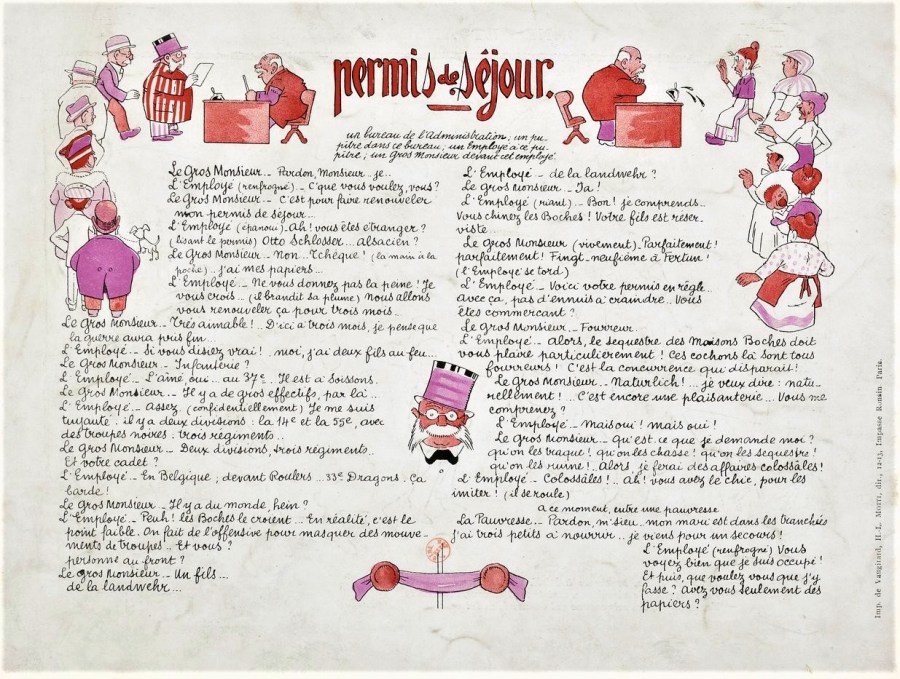 permis de séjour.
un bureau de l'administration ; un pu-
pitre dans ce bureau ; un employé à ce pu-
pitre ; un gros monsieur devant cet employé.
Le Gros Monsieur._ Pardon, Monsieur.. je..
L'Employé (renfrogné)._ C'que vous voulez, vous ?
Le Gros Monsieur._ C'est pour faire renouveler
mon permis de séjour...
L'Employé (épanoui)._ Ah ! vous êtes étranger ?
(lisant le permis) Otto Schlosser... Alsacien ?
Le Gros Monsieur._ Non.. Tchèque ! (la main à la
poche)_ j'ai mes papiers...
L'Employé._ Ne vous donnez pas la peine ! Je
vous crois... (il brandit sa plume) Nous allons
vous renouveler ça pour trois mois..
Le Gros Monsieur._ Très aimable !.. D'ici à trois mois, je pense que
la guerre aura pris fin...
L'Employé._ Si vous disiez vrai !.. moi, j'ai deux fils au feu...
Le Gros Monsieur._ Infanterie ?
L'Employé._ L'aîné, oui... au 37e.. Il est à Soissons.
Le Gros Monsieur._ Il y a de gros effectifs, par là..
L'Employé._ Assez. (confidentiellement) Je me suis
tuyauté : il y a deux divisions : la 14e et la 55e, avec
des troupes noires : trois régiments..
Le Gros Monsieur._ Deux divisions, trois régiments..
Et votre cadet ?
L'Employé._ En Belgique, devant Roulers... 33e Dragons. Ça
barde !
Le Gros Monsieur._ Il y a du monde, hein ?
L'Employé._ Peuh ! les Boches le croient... En réalité, c'est le
point faible. On fait de l'offensive pour masquer des mouve-
ments de troupes.. Et vous ?
personne au front ?
Le Gros Monsieur._ Un fils...
de la landwehr...
L'Employé._ de la landwehr ?
Le Gros Monsieur._ Ia !
L'Employé (riant)._ Bon ! je comprends..
Vous chinez les Boches ! Votre fils est réser-
viste...
Le Gros Monsieur (vivement)_ Parfaitement !
parfaitement ! Fingt-neufième à Fertun !
(l'Employé se tord)
L'Employé._ Voici votre permis en règle..
avec ça, pas d'ennuis à craindre.. Vous
êtes commerçant ?
Le Gros Monsieur._ Fourreur..
L'Employé._ Alors, le séquestre des Maisons Boches doit
vous plaire particulièrement ! Ces cochons là sont tous
fourreurs ! C'est la concurrence qui disparaît !
Le Gros Monsieur._ Naturlich !... je veux dire : natu-
rellement !... C'est encore une plaisanterie... Vous me
comprenez ?
L'Employé._ Mais oui ! mais oui !
Le Gros Monsieur._ Qu'est-ce que je demande moi ?
qu'on les traque ! qu'on les chasse ! qu'on les séquestre !
qu'on les ruine !.. Alors, je ferai des affaires colossâles !
L'Employé._ Colossâles !.. Ah ! vous avez le chic, pour les
imiter ! (il se roule)
A ce moment, entre une pauvresse
La Pauvresse._ Pardon, m'sieu.. mon mari est dans les tranchées
j'ai trois petits à nourrir.. je viens pour un secours !
L'Employé (renfrogné) Vous
voyez bien que je suis occupé !
Et puis, que voulez vous que j'y
fasse ? Avez vous seulement des
papiers ?
Imp. de Vaugirard, H.-L. Motti, dir., 12-13, Impasse Ronsin, Paris.